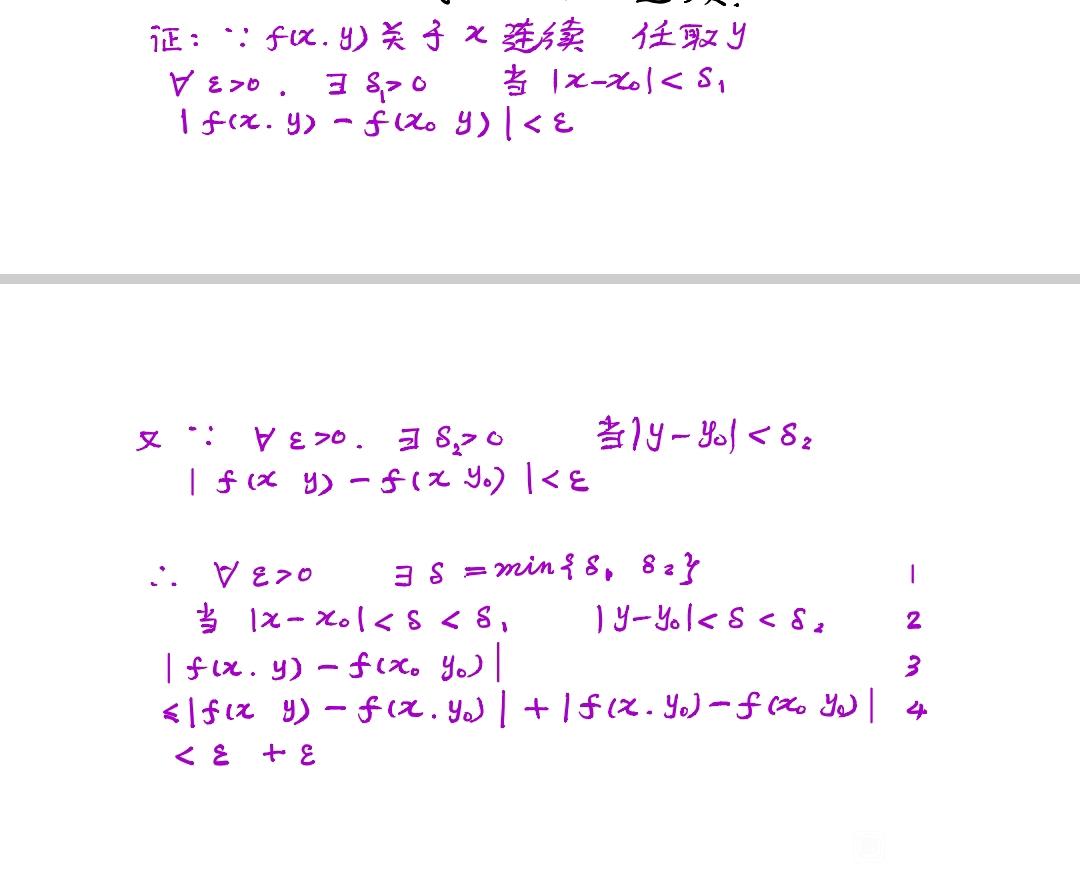 证: ∵ f(x. y) 关于 x 连续 任取 y
∀ ε>0 . ∃ δ₁>0 当 |x-x₀|< δ₁
| f(x. y) - f(x₀ y) |< ε
又 ∵ ∀ ε>0. ∃ δ₂>0 当|y-y₀|< δ₂
| f(x y) - f(x y₀) |< ε
∴ ∀ ε>0 ∃ δ =min{δ₁ δ₂} 1
当 |x-x₀|< δ < δ₁ |y-y₀|< δ < δ₂ 2
| f(x. y) - f(x₀ y₀)| 3
≤|f(x y) - f(x. y₀)| + |f(x. y₀)-f(x₀ y₀)| 4
< ε + ε